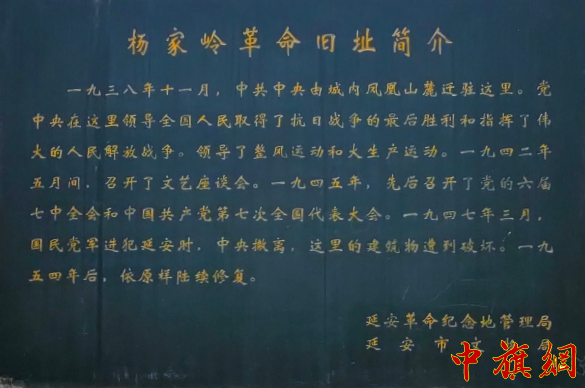 杨家岭革命旧址简介
一九三八年十一月，中共中央由城内凤凰山麓迁驻这里。党
中央在这里领导全国人民取得了抗日战争的最后胜利和指挥了伟
大的人民解放战争。领导了整风运动和大生产运动。一九四二年
五月间，召开了文艺座谈会。一九四五年，先后召开了党的六届
七中全会和中国共产党第七次全国代表大会。一九四七年三月，
国民党军进犯延安时，中央撤离，这里的建筑物遭到破坏。一九
五四年后，依原样陆续修复。
延安革命纪念地管理局
延安市文物局
中旗網